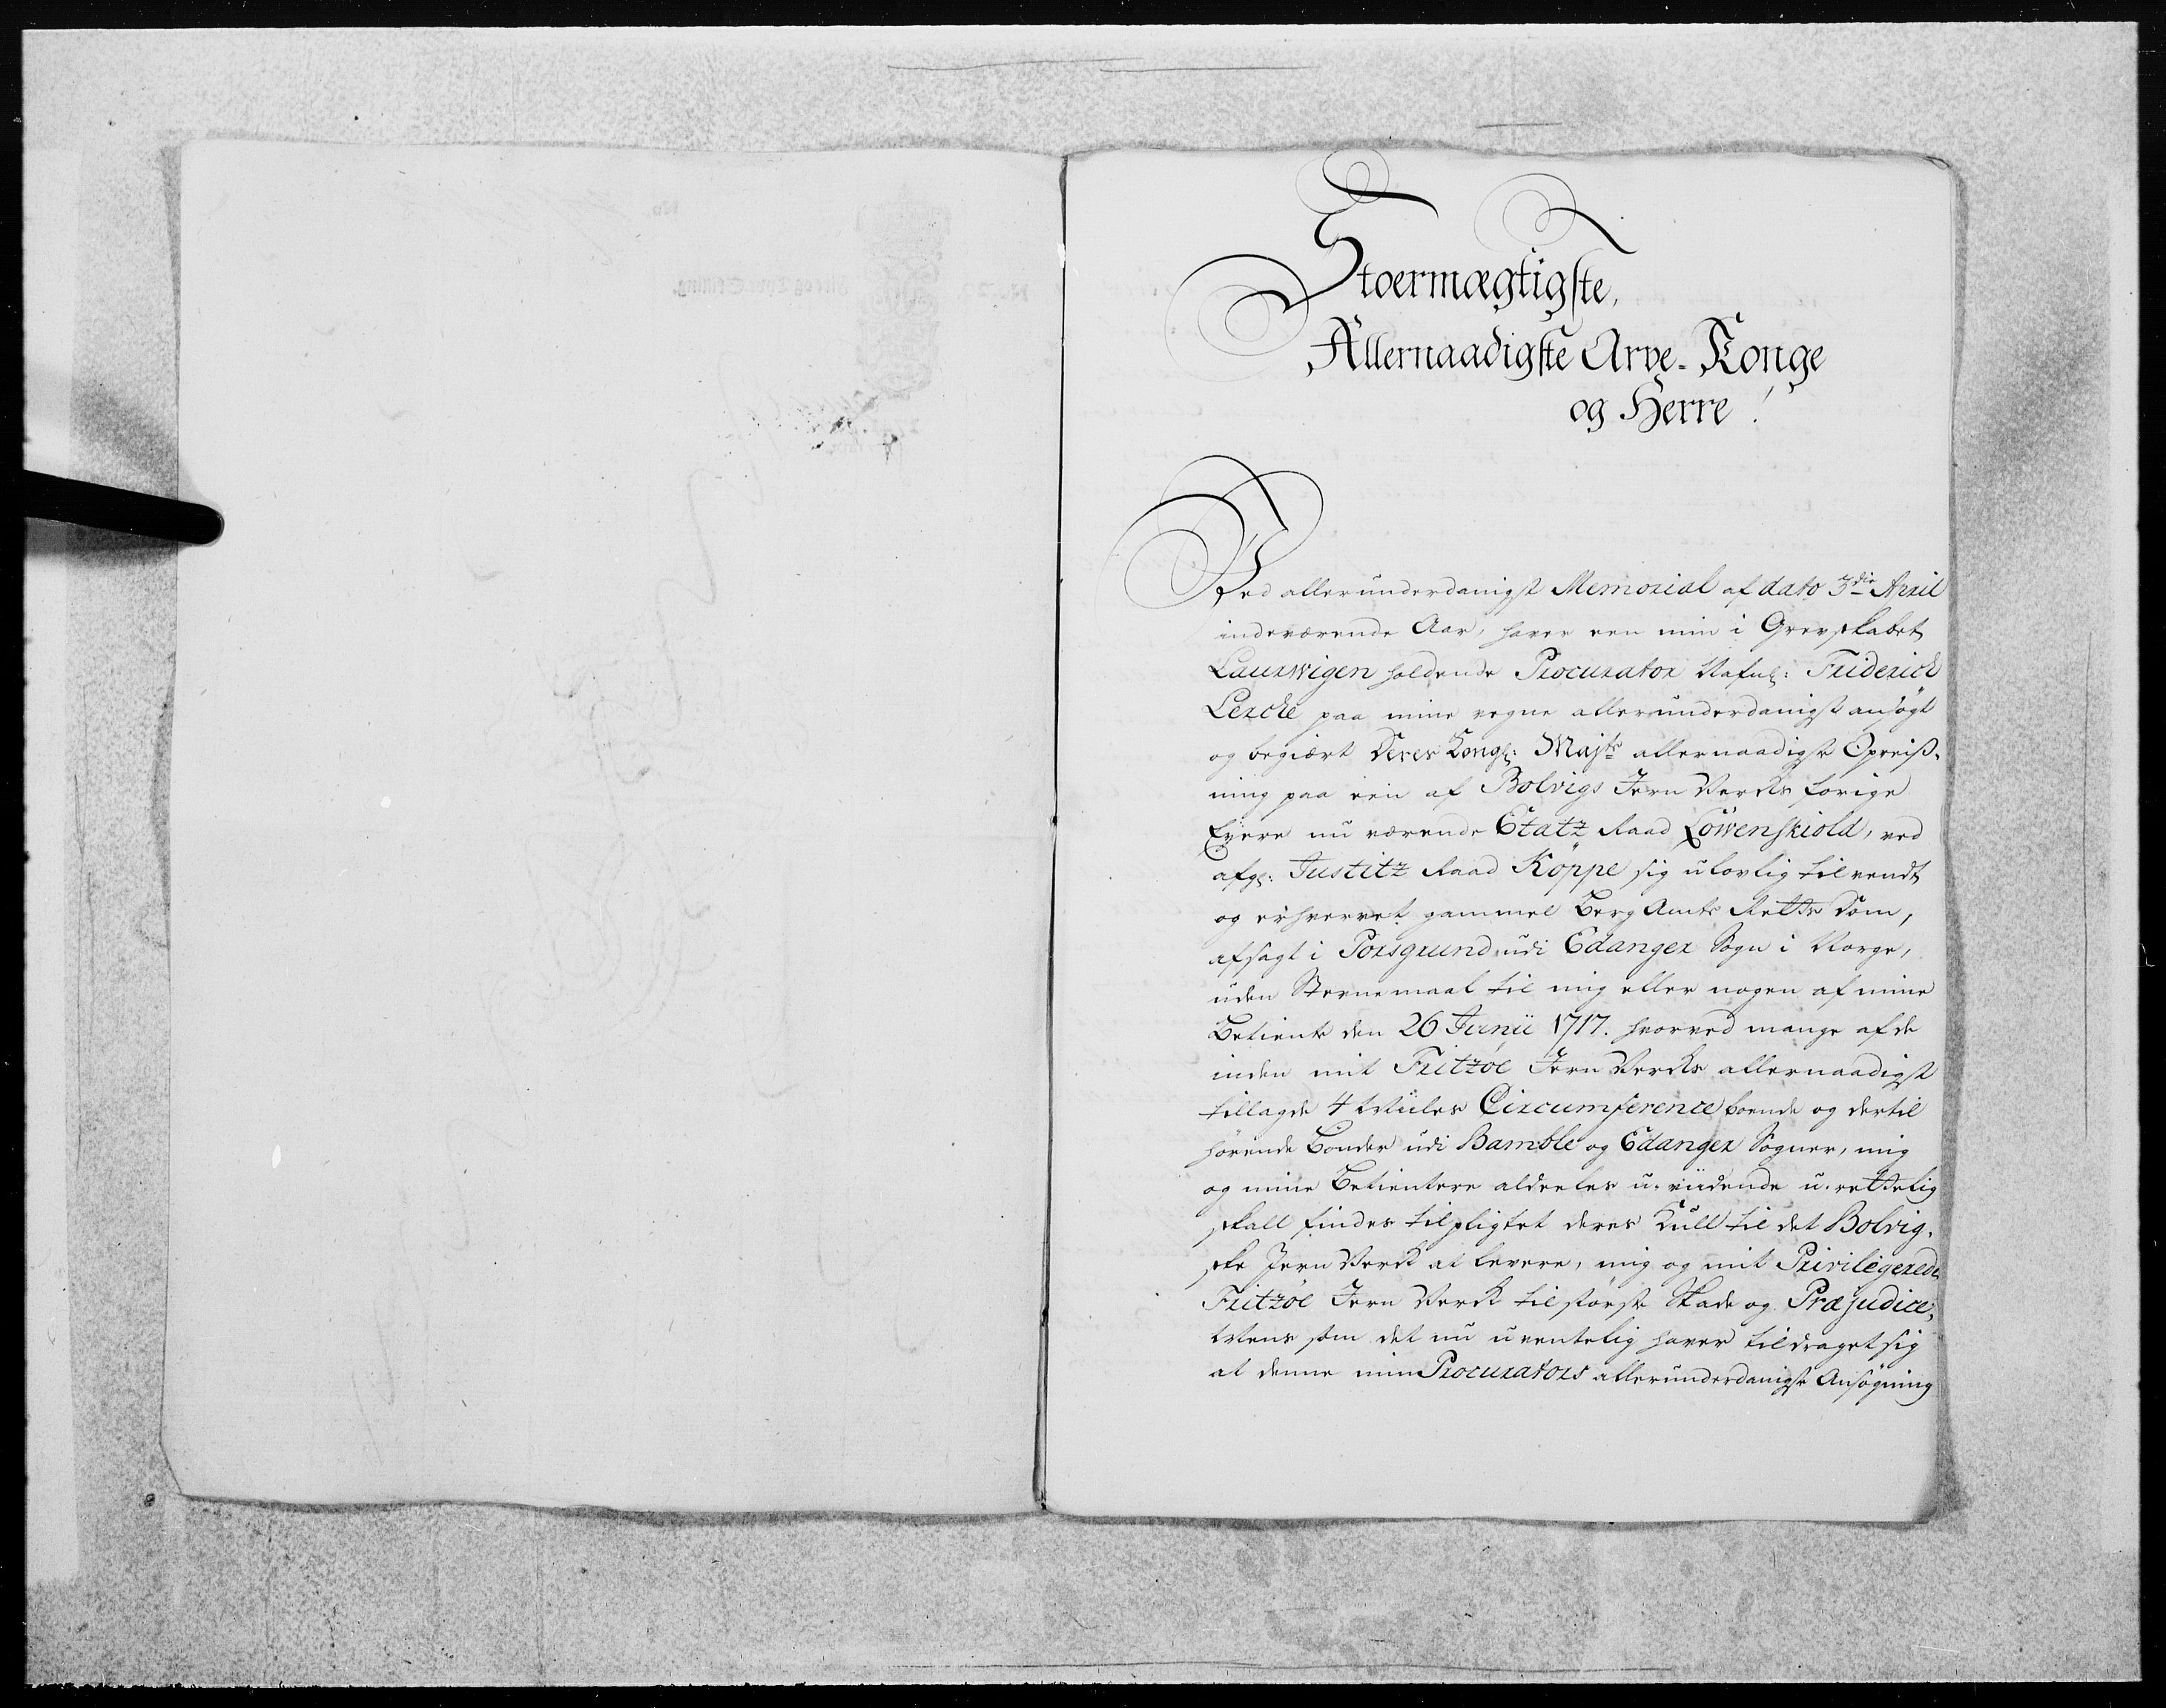 Stoermægtigste,
Allernaadigste Arve-Konge
og Herre!
Ved allerunderdanigst Memorial af dato 3die April
indeværende Aar, haver een min i Grevskabet
Laurwigen holdende Procurator Nafnl: Friderich
Lerche paa mine vegne allerunderdanigst ansøgt
og begiært Deres Kongl: Majts allernaadigste Opreiß-
ning paa een af Bolvigs Jern Vercks forige
Eyere nu værende Etatz Raad Löwenskiold, ved
afg: Justitz Raad Köppe sig ulovlig tilvendt
og erhvervet gammel Berg Amts Retts Dom,
afsagt i Porsgrund udi Edanger Sogn i Norge,
uden Stevnemaal til mig eller nogen af mine
Betiente den 26 Junii 1717. hvorved mange af de
inden mit Fritzöe Jern Vercks allernaadigst
tillagde 4 Miiles Circumference boende og dertil
hørende Bønder udi Bamble og Edanger Sogner, mig
og mine Betientere aldeeles u-viidende u-rettelig
skall findes tilpligtet deres Kull til det Bolvig-
ske Jern Verck at levere, mig og mit Privilegerede
Fritzöe Jern Verck til største Skade og Præjudice,
Mens som det nu uventelig haver tildraget sig
at denne min Procurators allerunderdanigste Ansøgning